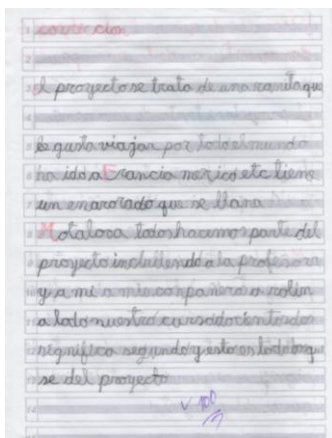 corrección
l proyecto se trata de una ranita que
le gusta viajar por todo el mundo
ha ido a Francia mexico etc tiene
un enamorado que se llama
Motaloca todos hacemos parte del
proyecto inclullendo a la profesora
y a mi a mis conpañeros a rolin
a todo nuestro curso docientos dos
significa segundo y esto es todo lo que
se del proyecto